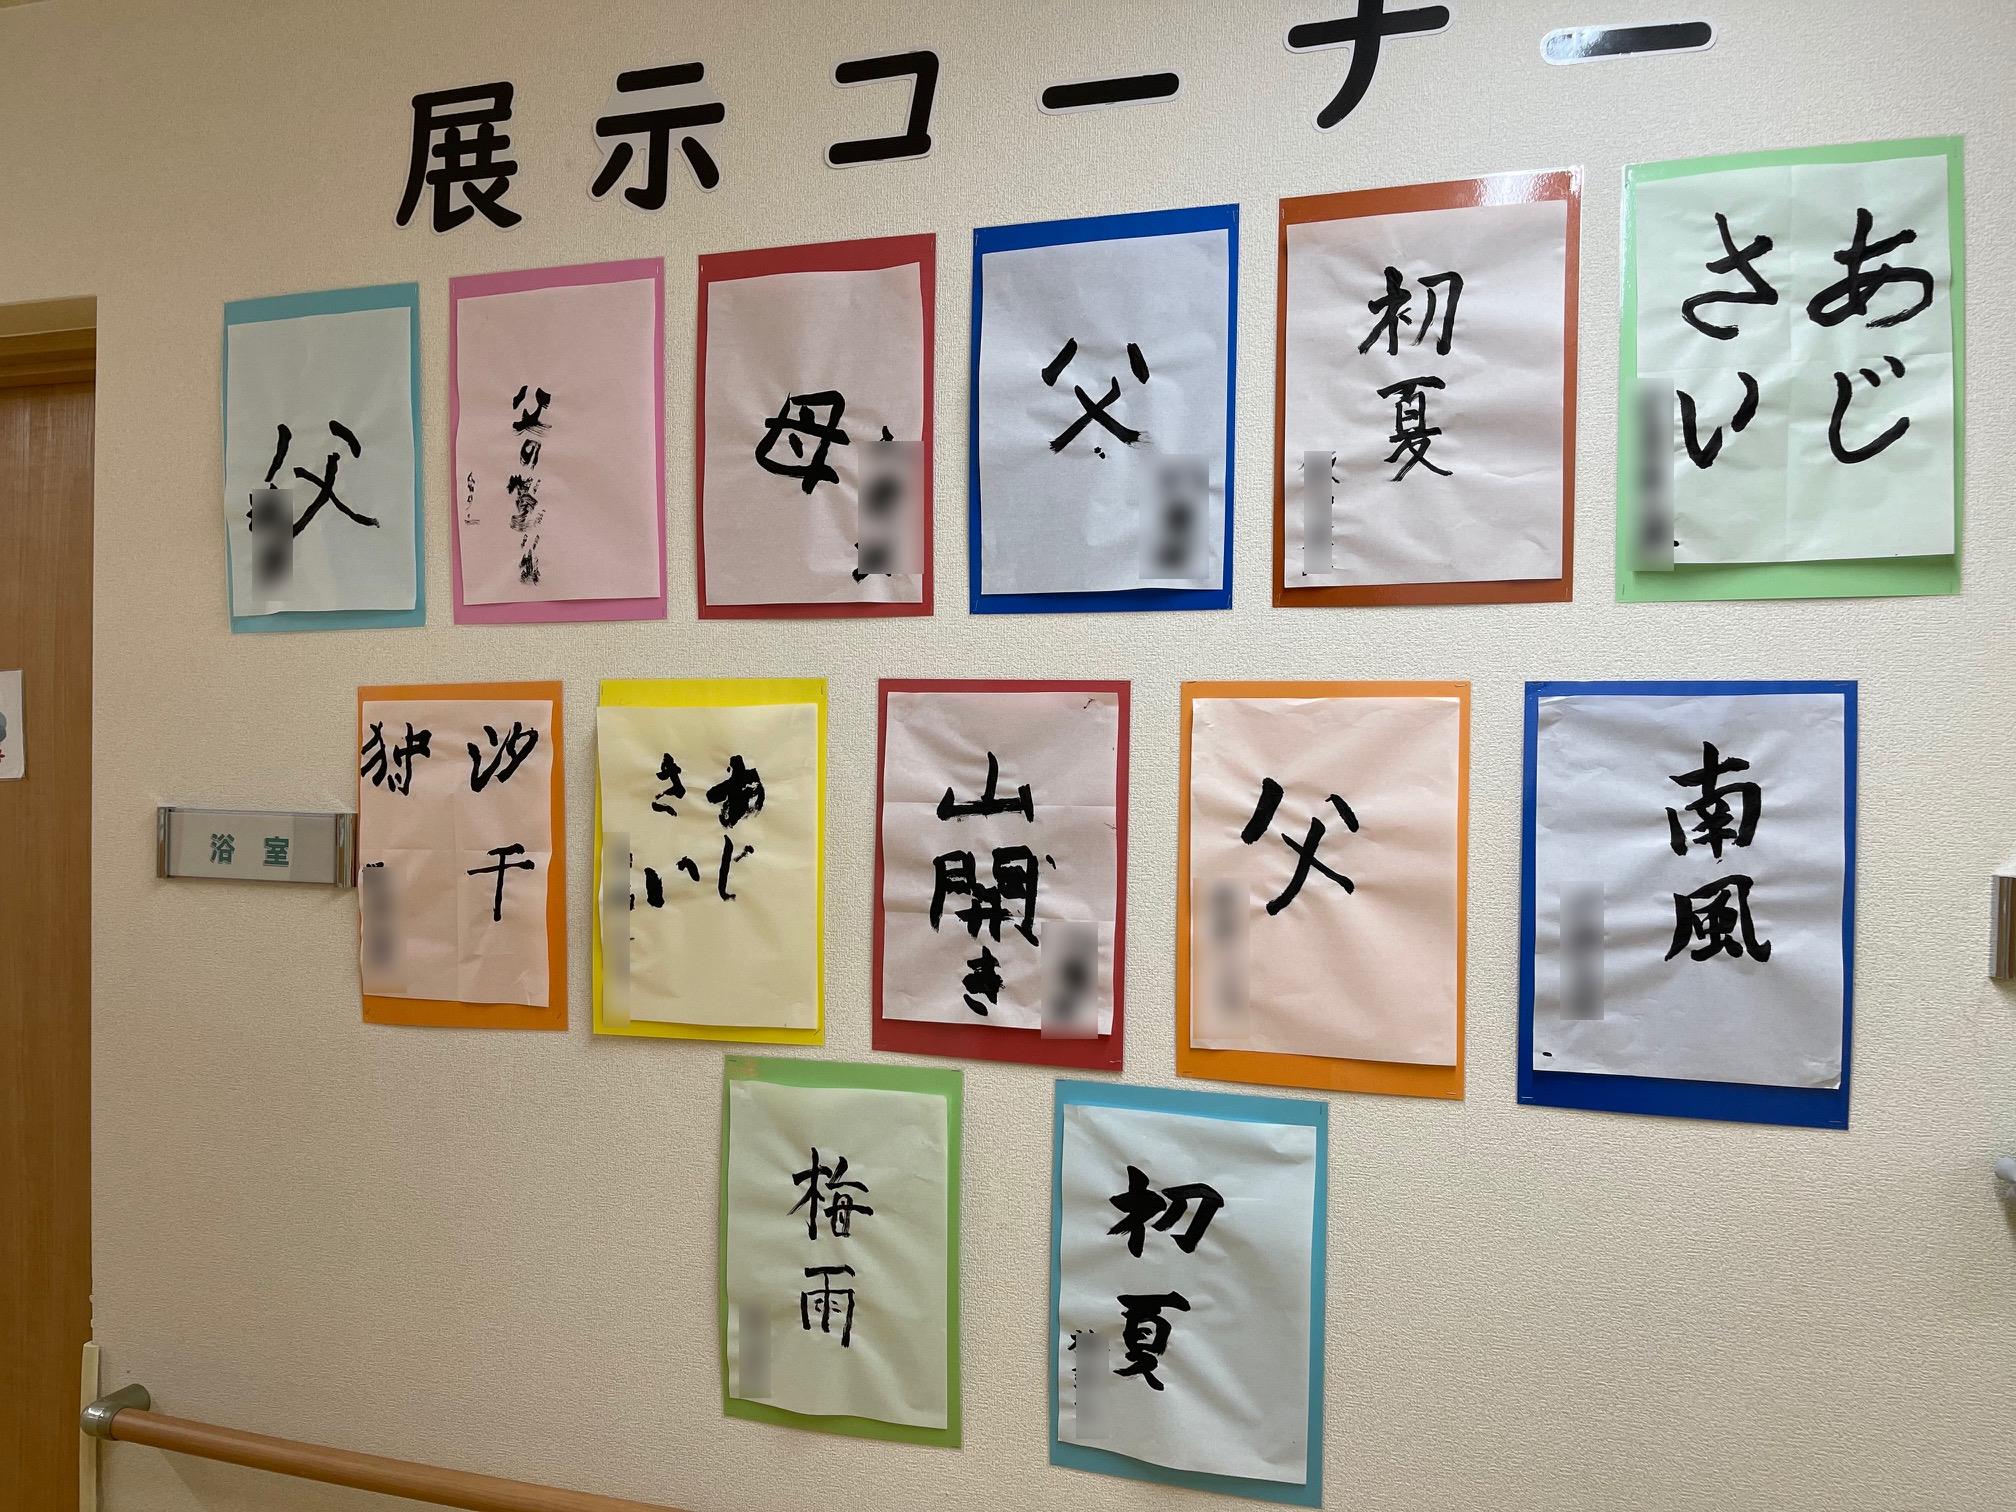 展示コーナー
父
父の
母
父
初夏
あじ
さい
汐干
狩
あじ
さい
山開き
父
南風
浴室
梅雨
初夏